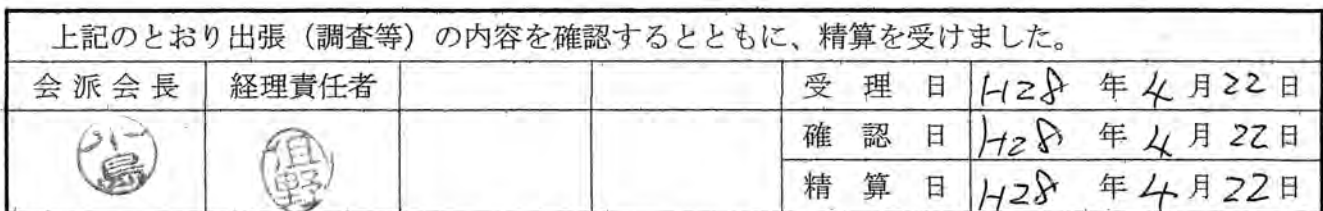 上記のとおり出張（調査等）の内容を確認するとともに、精算を受けました。
会派会長 経理責任者 受理日 H28 年 4 月 22 日
確認日 H28 年 4 月 22 日
小島 但野
精算日 H28 年 4 月 22 日